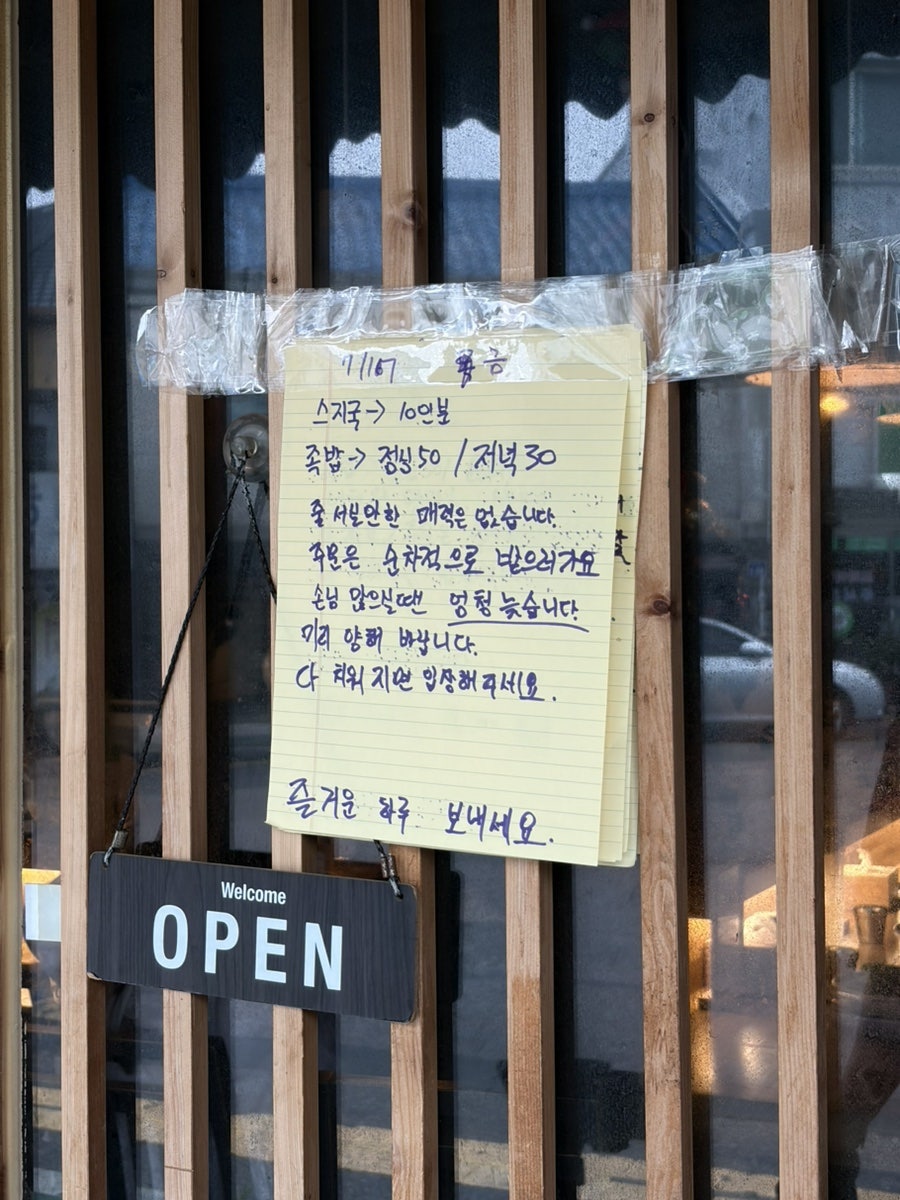 금
스지국 → 10인분
족밥 → 점심 50 / 저녁 30
줄 서실만한 매력은 없습니다.
주문은 순차적으로 받으러가요
손님 많으실땐 엄청 늦습니다.
미리 양해 바랍니다.
다 치워 지면 입장해주세요.
즐거운 하루 보내세요.
Welcome
OPEN